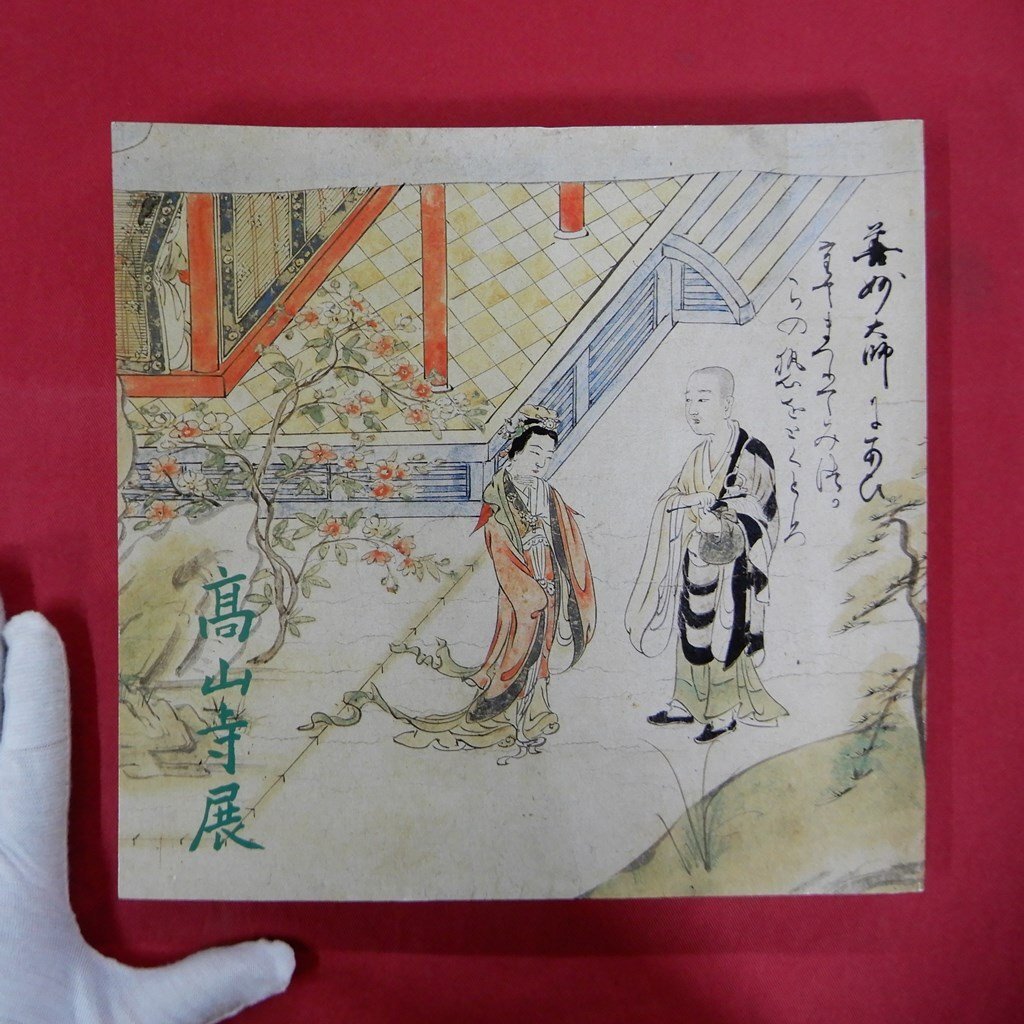 善妙大師にあひ
たてまつりてみつか
らの執心をとくところ
高山寺展